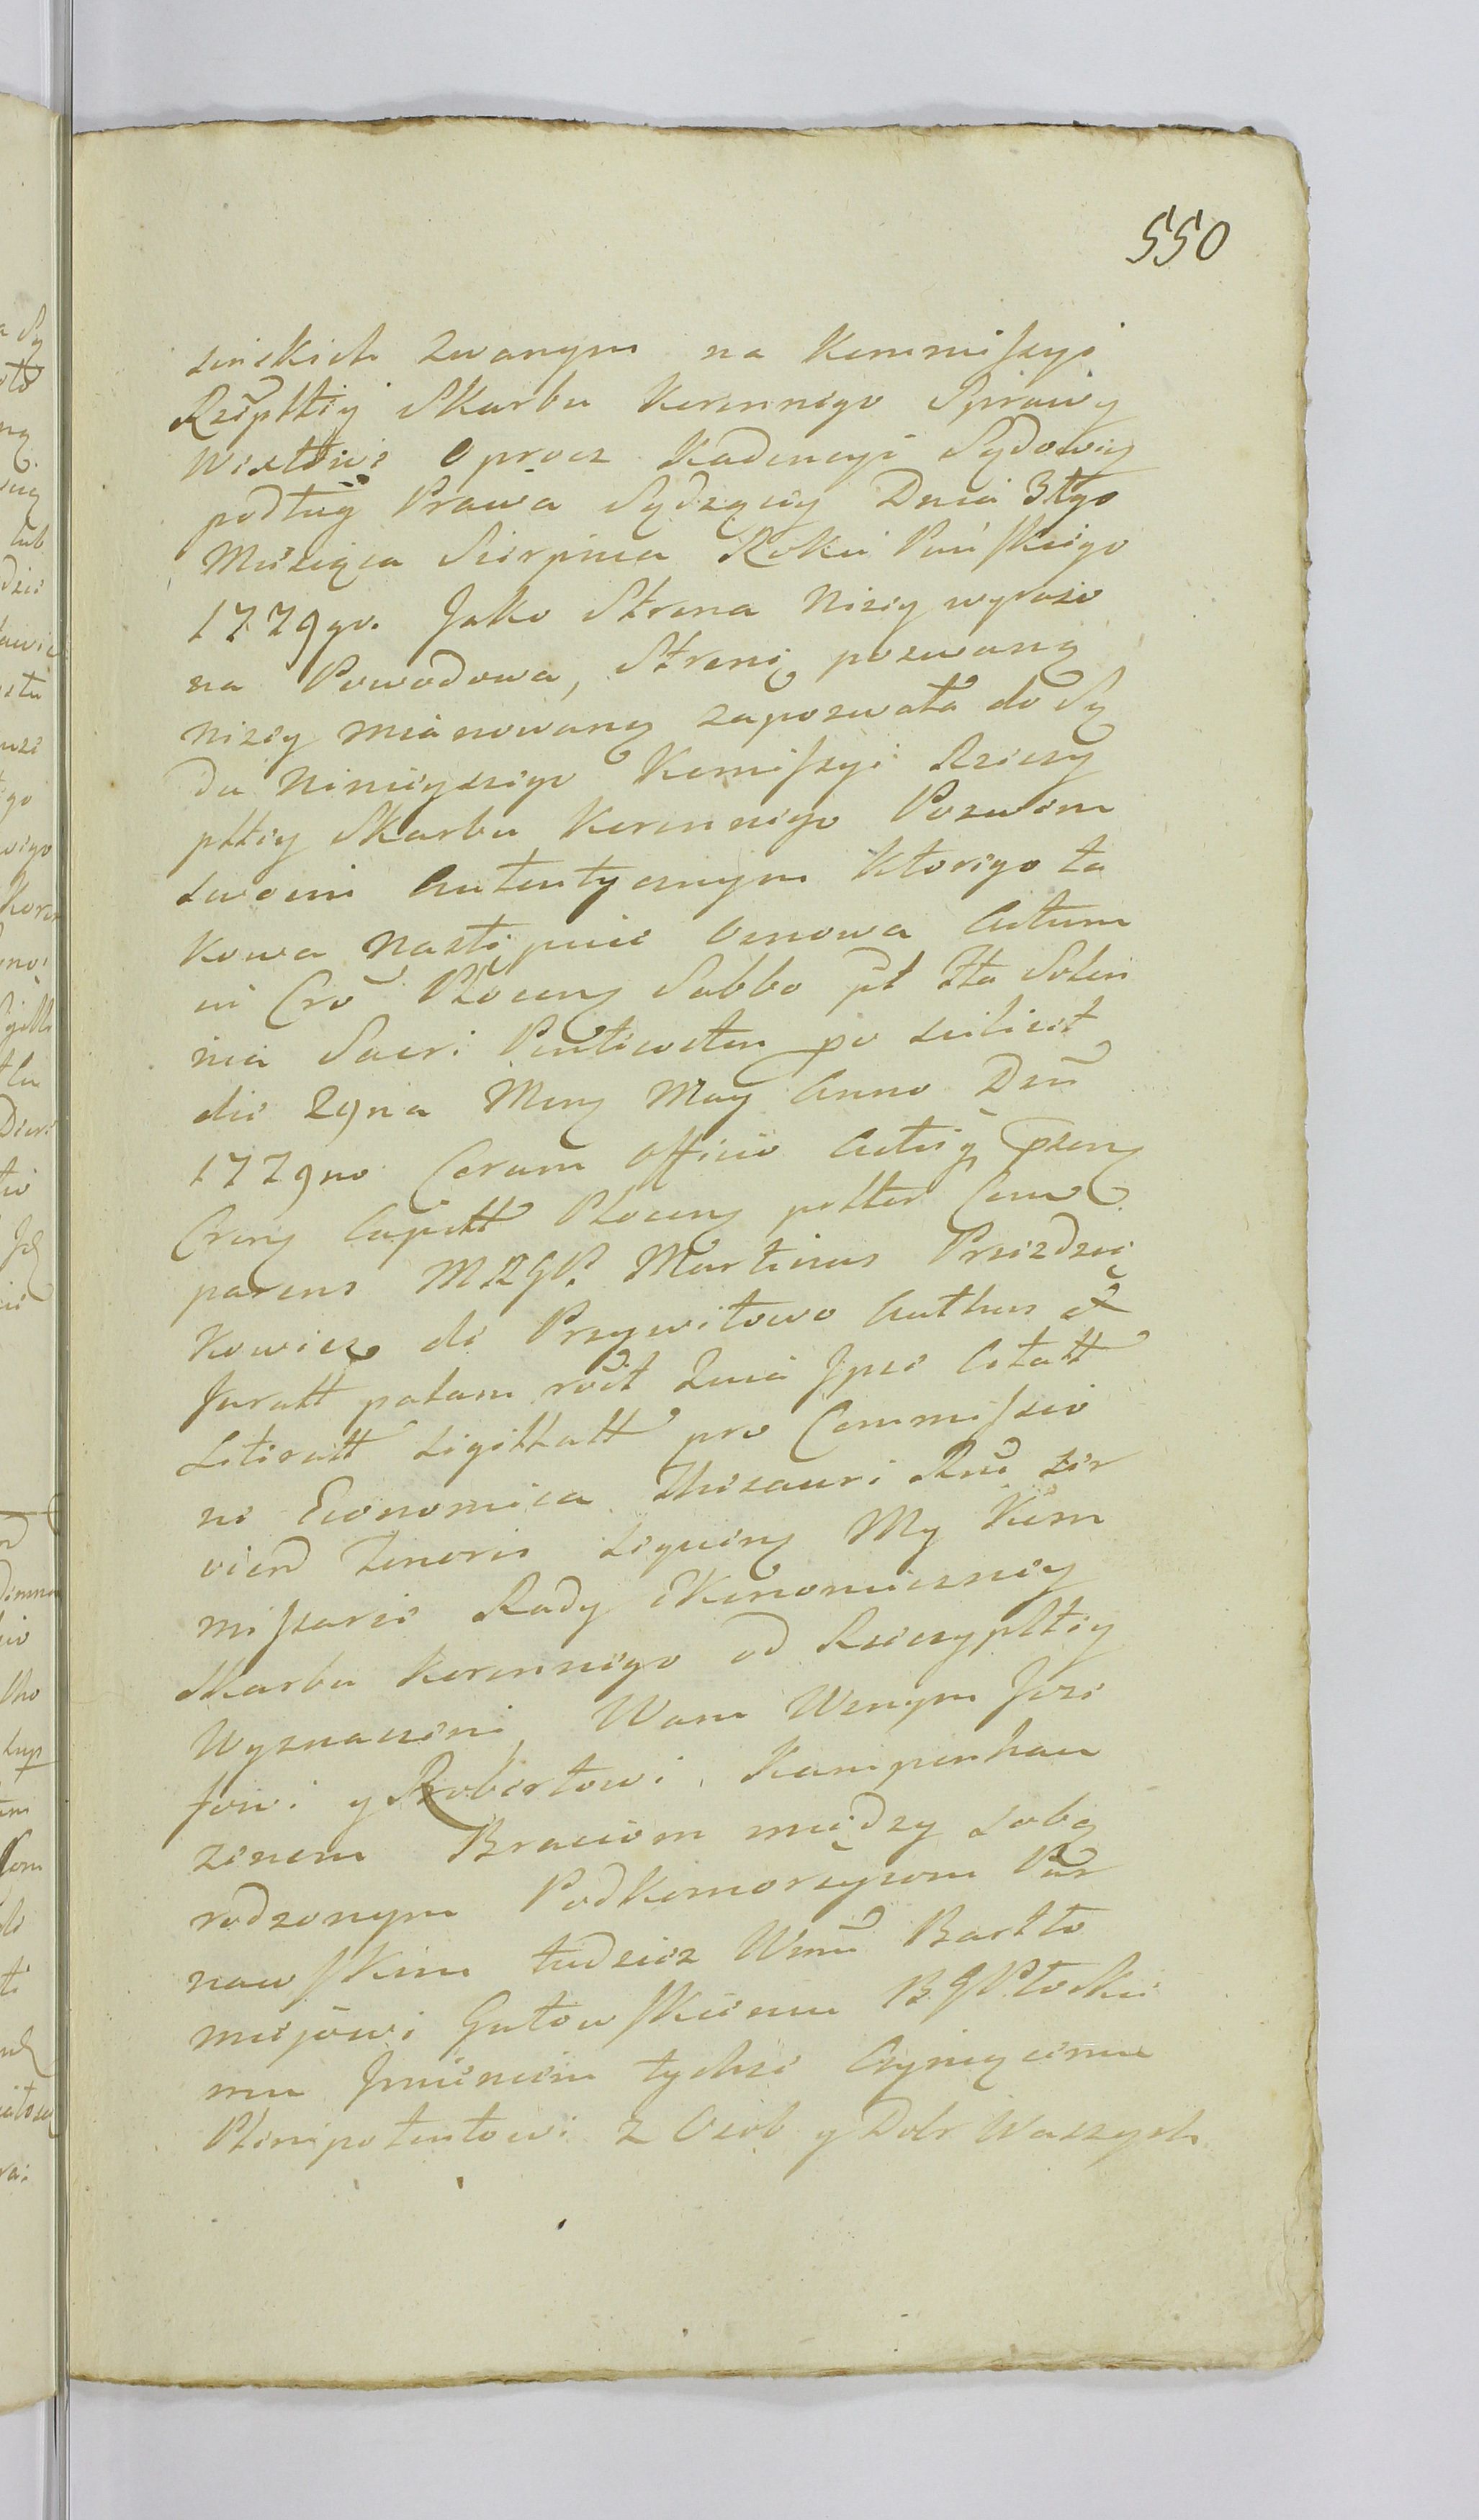 550
sinskich zwanym na Kommissyi
Rzēpltey Skarbu Koronnego Sprawy
Wistowe Oprocz Kadencyi Sądowey
podług Prawa Sądzącey Dnia 31go
Miesiąca Sierpnia Roku Pańskiego
1779go. Jako Strona Niżey wyrażo
na Powodowa, Stronę pozwaną
niżey mianowaną zapozwała do Są
du Ninieyszego Komissyi Rzeczy
pltey Skarbu Koronnego Pozwem
swoem Autentycznym Ktorego ta
kowa Następuie Osnowa Actum
in Cro Plocen Sabbo pt Fta Solen
nia Sacri Pentecosten po scilicet
die 29na Men May Anno Dni
1779no Coram Officio Actisq pzen
Cren Capitt Plocen psltter Com
parens MRGP. Martinus Przezdzie
kowicz de Przywitowo Authus et
Juratt palam rōct Lma Jpse Citatt
Literatt sigillatt pro Commissio
ne Economica Thesauri Rni ser
vien Tenoris Sequen My Kom
missarze Rady Ekonomiczney
Skarbu Koronnego od Rzeczypltey
Wyznaczeni, Wam Wznym Joze
fowi y Robertowi Kampenhau
zenom Braciom między sobą
rodzonym Podkomorzycom Par
nawskim tudzież Wmu Bartło
mieiowi Gutowskiemu BGPłockie
mu Jmieniem tychże Czyniącemu
Plenipotentowi z Osob y Dobr Waszych